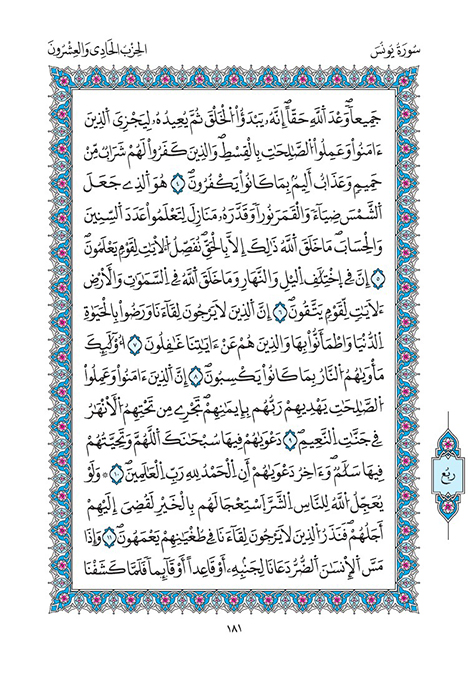 سُورَةُ يُونُسَ
الحِزْبُ الحَادِي وَالعِشْرُونَ
جَمِيعاًۖ وَعْدَ اَ۬للَّهِ حَقّاًۖ اِنَّهُۥ يَبْدَؤُاْ اُ۬لْخَلْقَ ثُمَّ يُعِيدُهُۥ لِيَجْزِيَ اَ۬لذِينَ
ءَامَنُواْ وَعَمِلُواْ اُ۬لصَّٰلِحَٰتِ بِالْقِسْطِۖ وَالذِينَ كَفَرُواْ لَهُمْ شَرَابٞ مِّنْ
حَمِيمٖ وَعَذَابٌ اَلِيمُۢ بِمَا كَانُواْ يَكْفُرُونَۖ ٤ هُوَ اَ۬لذِے جَعَلَ
اَ۬لشَّمْسَ ضِيَآءٗ وَالْقَمَرَ نُوراٗ وَقَدَّرَهُۥ مَنَازِلَ لِتَعْلَمُواْ عَدَدَ اَ۬لسِّنِينَ
وَالْحِسَابَۖ مَا خَلَقَ اَ۬للَّهُ ذَٰلِكَ إِلَّا بِالْحَقِّۖ نُفَصِّلُ اُ۬لْأٓيَٰتِ لِقَوْمٖ يَعْلَمُونَۖ
٥ إِنَّ فِے اِ۪خْتِلَٰفِ اِ۬ليْلِ وَالنَّهَارِ وَمَا خَلَقَ اَ۬للَّهُ فِے اِ۬لسَّمَٰوَٰتِ وَالْأَرْضِ
لَأٓيَٰتٖ لِّقَوْمٖ يَتَّقُونَۖ ٦ إِنَّ اَ۬لذِينَ لَا يَرْجُونَ لِقَآءَنَا وَرَضُواْ بِالْحَيَوٰةِ
اِ۬لدُّنْيَا وَاطْمَأَنُّواْ بِهَا وَالذِينَ هُمْ عَنَ اٰيَٰتِنَا غَٰفِلُونَ ٧ أُوْلَٰٓئِكَ
مَأْوَىٰهُمُ اُ۬لنَّارُ بِمَا كَانُواْ يَكْسِبُونَۖ ٨ إِنَّ اَ۬لذِينَ ءَامَنُواْ وَعَمِلُواْ
اُ۬لصَّٰلِحَٰتِ يَهْدِيهِمْ رَبُّهُم بِإِيمَٰنِهِمْۖ تَجْرِے مِن تَحْتِهِمُ اُ۬لْأَنْهَٰرُ
فِے جَنَّٰتِ اِ۬لنَّعِيمِۖ ٩ دَعْوَىٰهُمْ فِيهَا سُبْحَٰنَكَ اَ۬للَّهُمَّ وَتَحِيَّتُهُمْ
فِيهَا سَلَٰمٞۖ وَءَاخِرُ دَعْوَىٰهُمُۥٓ أَنِ اِ۬لْحَمْدُ لِلهِ رَبِّ اِ۬لْعَٰلَمِينَۖ ١٠ ۞ وَلَوْ
يُعَجِّلُ اُ۬للَّهُ لِلنَّاسِ اِ۬لشَّرَّ اَ۪سْتِعْجَالَهُم بِالْخَيْرِ لَقُضِيَ إِلَيْهِمُۥٓ
أَجَلُهُمْۖ فَنَذَرُ اُ۬لذِينَ لَا يَرْجُونَ لِقَآءَنَا فِے طُغْيَٰنِهِمْ يَعْمَهُونَۖ ١١ وَإِذَا
مَسَّ اَ۬لْإِنسَٰنَ اَ۬لضُّرُّ دَعَانَا لِجَنۢبِهِۦٓ أَوْ قَاعِداً اَوْ قَآئِماٗ فَلَمَّا كَشَفْنَا
ربع
١٨١